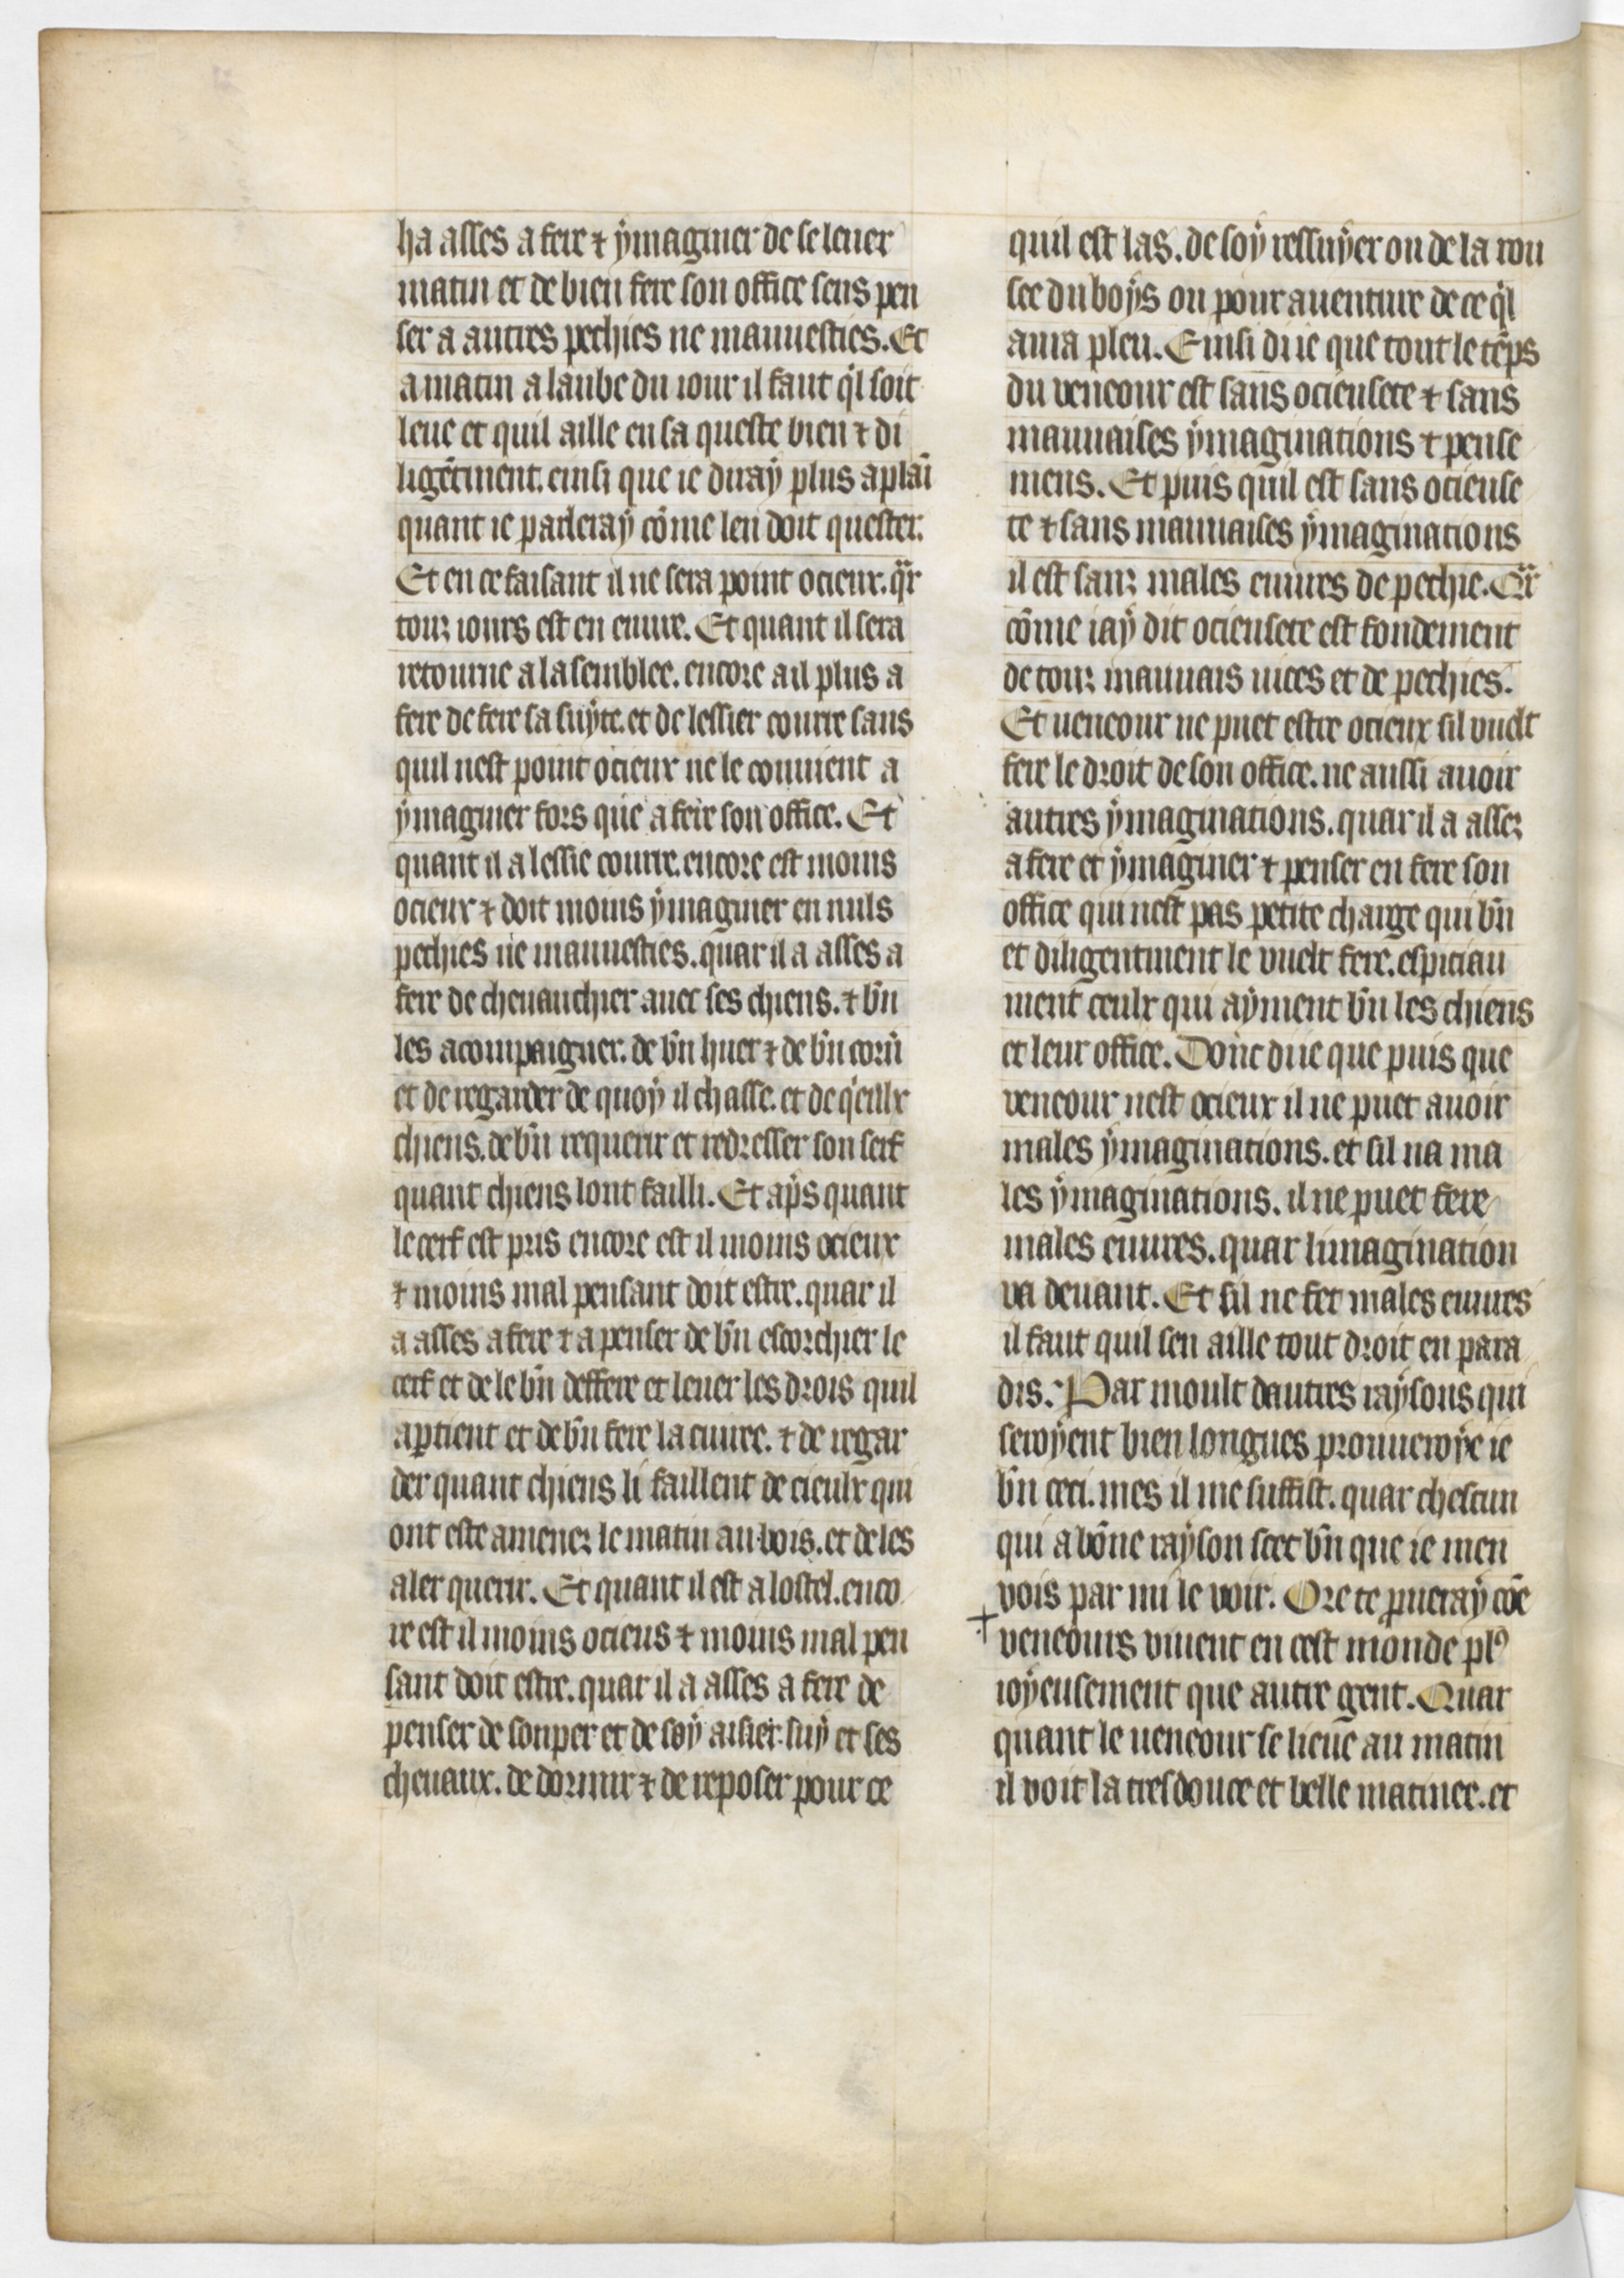 ha asses a fere ⁊ ẏmaginer de se leuer
matin et de bien fere son office sens pen
ser a autres pechies ne mauuesties. Et
a matin a laube du iour il faut ql soit
leue et quil aille en sa queste bien ⁊ di
ligẽtment. einsi que ie diraẏ plus a plaĩ
quant ie parleraẏ cõme len doit quester.
Et en ce faisant il ne sera point ocieux. qr
touz iours est en euure. Et quant il sera
retourne a lasemblee. encore a il plus a
fere de fere sa suẏte. et de lessier courre sans
quil nest point ocieux ne le conuient a
ẏmaginer fors que a fere son office. Et
quant il a lessie courre. encore est moins
ocieux ⁊ doit moins ẏmaginer en nuls
pechies ne mauuesties. quar il a asses a
fere de cheuauchier auec ses chiens. ⁊ bñ
les acompaigner. de bñ huer ⁊ de bñ corñ
et de regarder de quoẏ il chasse. et de q̃eulx
chiens. de bñ requerir et redresser son serf
quant chiens lont failli. Et ap̃s quant
le cerf est pris encore est il moins ocieux
⁊ moins mal pensant doit estre. quar il
a asses a fere ⁊ a penser de bñ escorchier le
cerf et de le bñ deffere et leuer les drois quil
aꝑtient et de bñ fere la cuiree. ⁊ de regar
der quant chiens li faillent de cieulx qui
ont este amenez le matin au bois. et de les
aler querir. Et quant il est a lostel. enco
re est il moins ocieus ⁊ moins mal pen
sant doit estre. quar il a asses a fere de
penser de souper et de soẏ aisier. luẏ et ses
cheuaux. de dormir ⁊ de reposer pour ce
quil est las. de soẏ ressuẏer ou de la rou
see du boẏs ou pour auenture de ce ql
aura pleu. Einsi di ie que tout le tẽps
du veneour est sans ocieusete ⁊ sans
mauuaises ẏmaginations ⁊ pense
mens. Et puis quil est sans ocieuse
te ⁊ sans mauuaises ẏmaginations
il est sanz males euures de pechie. Qr
cõme iaẏ dit ocieusete est fondement
de touz mauuais uices et de pechies.
Et ueneour ne puet estre ocieux sil vuelt
fere le droit de son office. ne aussi auoir
autres ẏmaginations. quar il a assez
a fere et ẏmaginer ⁊ penser en fere son
office qui nest pas petite charge qui bñ
et diligentment le vuelt fere. espiciau
ment ceulx qui aẏment bñ les chiens
et leur office. Donc di ie que puis que
veneour nest ocieux il ne puet auoir
males ẏmaginations. et sil na ma
les ẏmaginations. il ne puet fere
males euures. quar limagination
va deuant. Et sil ne fet males euures
il faut quil sen aille tout droit en para
dis. Par moult dautres raẏsons qui
seroẏent bien longues prouueroẏe ie
bñ ceci. mes il me suffist. quar chescun
qui a bõne raẏson scet bñ que ie men
vois par mi le voir. Ore te ꝓueraẏ cõe
veneours viuent en cest monde plꝰ
ioẏeusement que autre gent. Quar
quant le ueneour se lieue au matin
il voit la tres douce et belle matinee. et